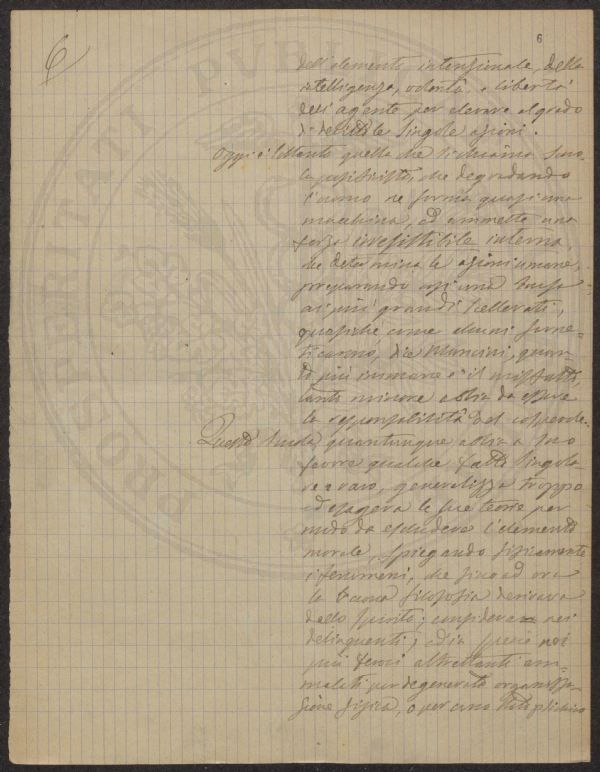 6
6
PROSPERITATI PVBL
dell'elemento intenzionale, della
intelligenza, volontà, e libertà
dell'agente per elevare al grado
di delitto le singole azioni.
Oggi è quella che si chiama
positivista, che degradando
l'uomo ne forma quasi una
macchina, ed ammette una
forza irresistibile interna,
che determina le azioni umane,
preparando così una
ai più grandi scellerati,
quasiché come alcuni
dice Mancini, quan
più immane è il misfatto,
tanto minore abbia da essere
la responsabilità del colpevole.
Questa scuola quantunque abbia a suo
favore qualche fatto singola
re e raro, generalizza troppo
ed esagera le sue teorie per
modo da escludere l'elemento
morale, spiegando fisicamente
i fenomeni, che sino ad ora
la buona filosofia derivava
dallo spirito; considera nei
delinquenti, e in specie nei
più feroci altrettanti am
malati per degenerata organizza
zione fisica, o per